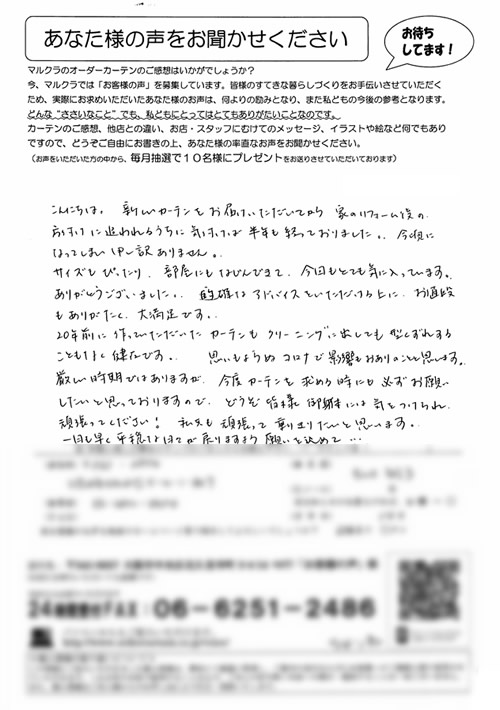 あなた様の声をお聞かせください
お待ち
してます!
マルクラのオーダーカーテンのご感想はいかがでしょうか?
今、マルクラでは「お客様の声」を募集しています。皆様のすてきな暮らしづくりをお手伝いさせていただく
ため、実際にお求めいただいたあなた様のお声は、何よりの励みとなり、また私どもの今後の参考となります。
どんな“ささいなこと”でも、私どもにとってはとてもありがたいことなのです。
カーテンのご感想、他店との違い、お店・スタッフにむけてのメッセージ、イラストや絵など何でもあり
ですので、どうぞご自由にお書きの上、あなた様の率直なお声をお聞かせください。
(お声をいただいた方の中から、毎月抽選で10名様にプレゼントをお送りさせていただいております)
こんにちは。 新しいカーテンをお届けいただいてから 家のリフォーム後の
片付けに追われるうちに気付けば 半年も経っておりました。 今頃に
なってしまい申し訳ありません。
サイズもぴったり、部屋にもなじんできて、今回もとても気に入っています。
ありがとうございました。 的確なアドバイスをいただける上に、お値段
もありがたく、大満足です。
20年前に作っていただいたカーテンもクリーニングに出しても型くずれする
こともなく健在です。 思いもよらぬコロナで影響もおありのことと思います。
厳しい時期ではありますが、今度カーテンを求める時にも必ずお願い
したいと思っておりますので、どうぞ皆様 御身体には気をつけられ、
頑張ってください! 私共も頑張って乗り切りたいと思います。
一日も早く平穏な日々が戻りますよう 願いを込めて…
24時間受付FAX:06-6251-2486